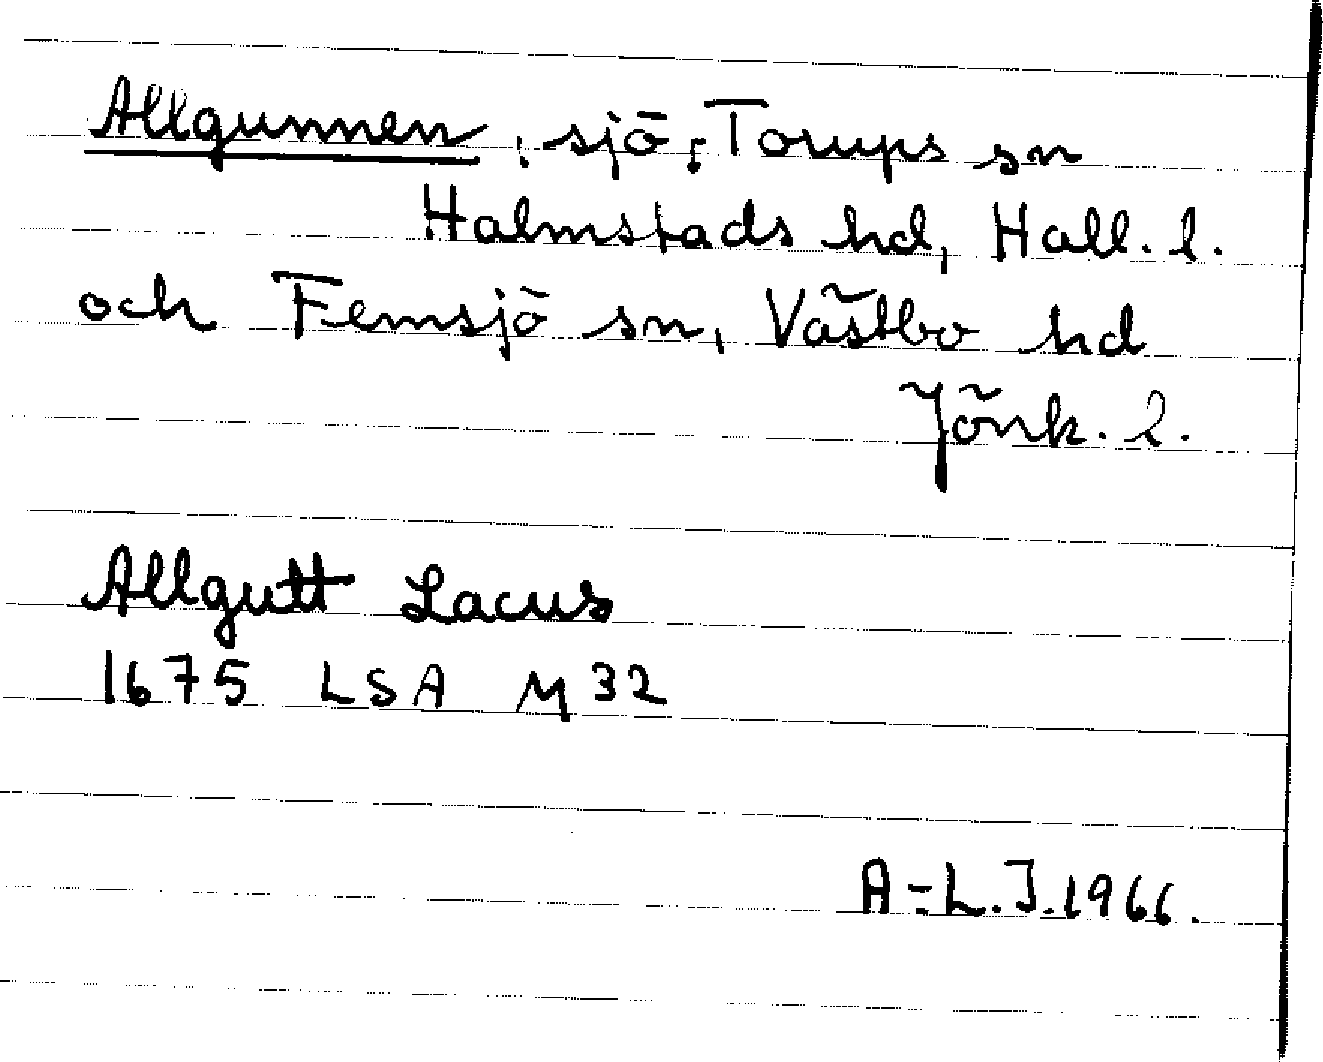 Allgunnen, sjö, Torups sn
Halmstads hd, Hall. l.
och Femsjö sn, Västbo hd
Jönk. l.
Allgutt Lacus
1675 LSA M32
A-L.J.1966.